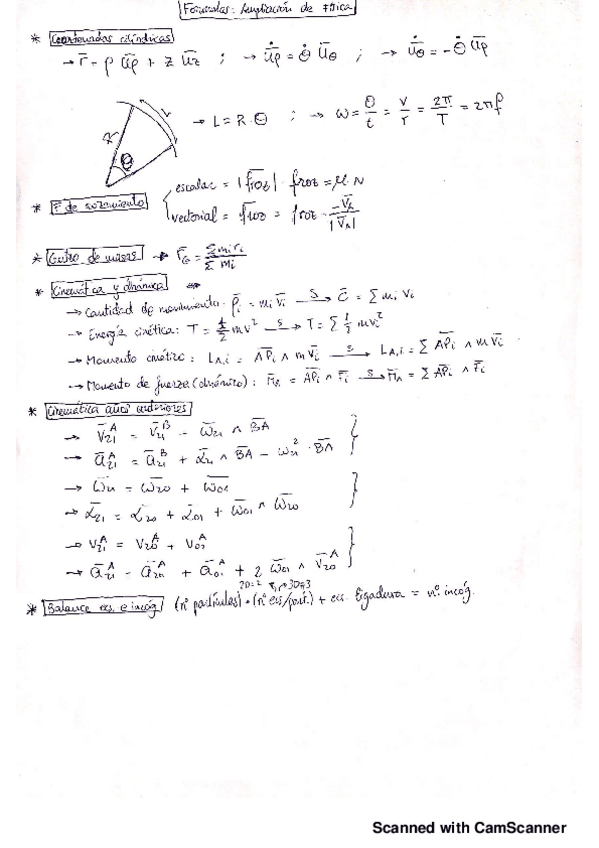 Formulas: Ampliación de Física
* Coordenadas cilíndricas
→ r̄ = ρ ūρ + z ūz ; → u̇̄ρ = θ̇ ūθ ; → u̇̄θ = -θ̇ ūρ
R L θ → L = R·θ ; → ω = θ/t = v/r = 2π/T = 2πf
* F de rozamiento
escalar = |f̄roz| · froz = μ·N
vectorial = f̄roz = froz · -V̄A/|V̄A|
* Centro de masas → r̄G = Σmiri/Σmi
* Cinemática y dinámica
→ Cantidad de movimiento: p̄i = mi v̄i —S→ C̄ = Σ mi vi
→ Energía cinética: T = 1/2 mv² —S→ T = Σ 1/2 mvi²
→ Momento cinético: LA,i = APi ∧ m v̄i —S→ LA,i = Σ APi ∧ m v̄i
→ Momento de fuerza (dinámico): M̄A = APi ∧ F̄i —S→ M̄A = Σ APi ∧ F̄i
* Cinemática años anteriores
→ V̄21^A = V̄21^B - ω̄21 ∧ BA
→ ā21^A = ā21^B + ᾱ21 ∧ BA - ω21² · BA
→ ω̄21 = ω̄20 + ω̄01
→ ᾱ21 = ᾱ20 + ᾱ01 + ω̄01 ∧ ω̄20
→ V21^A = V20^A + V01^A
→ ā21^A = ā20^A + ā01^A + 2 ω̄01 ∧ V̄20^A
2D=2 3D=3
* Balance ecs. e incóg. (nº partículas)·(nº ecs/part.) + ecs. ligadura = nº incóg.
Scanned with CamScanner